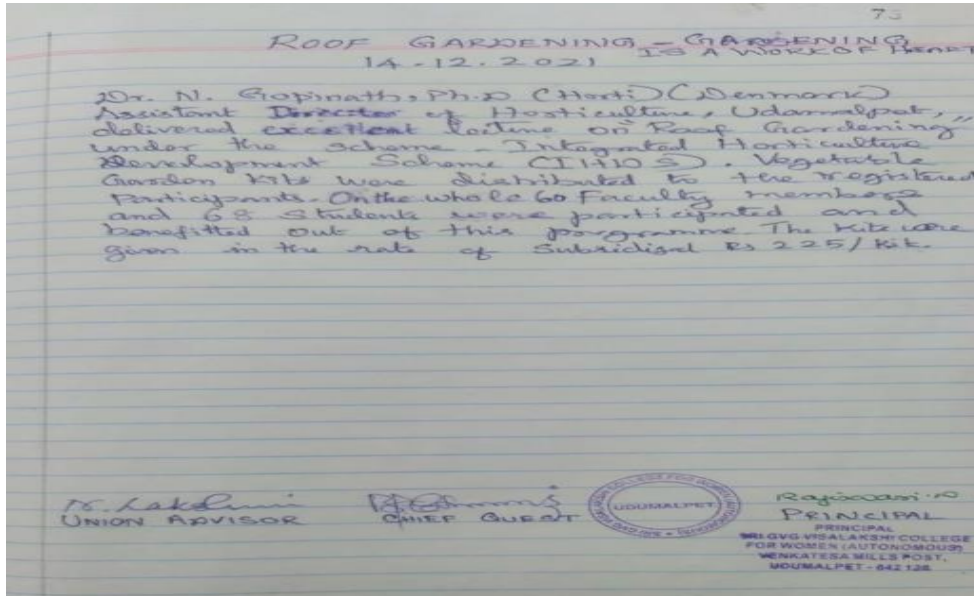 ROOF GARDENING - GARDENING
IS A WORK OF HEART
14.12.2021
Dr. N. Gopinath, Ph.D (Horti) (Denmark)
Assistant Director of Horticulture, Udamalpet,
delivered excellent lecture on "Roof Gardening"
under the scheme - Integrated Horticulture
Development Scheme (IHDS). Vegetable
Garden Kits were distributed to the registered
Participants. On the whole 60 Faculty members
and 68 Students were participated and
benefitted out of this programme The Kits were
given in the rate of Subsidized Rs 225/Kit.
Lakshmi
UNION ADVISOR
CHIEF GUEST
UDUMALPET
PRINCIPAL
PRINCIPAL
SRI GVG VISALAKSHI COLLEGE
FOR WOMEN (AUTONOMOUS)
VENKATESA MILLS POST,
UDUMALPET - 642 128